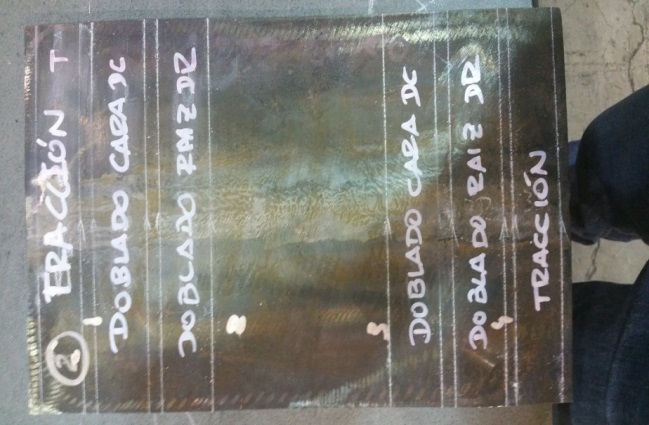 2 TRACCIÓN T
DOBLADO CARA DC
DOBLADO RAIZ DR
DOBLADO CARA DC
DOBLADO RAIZ DR
TRACCIÓN